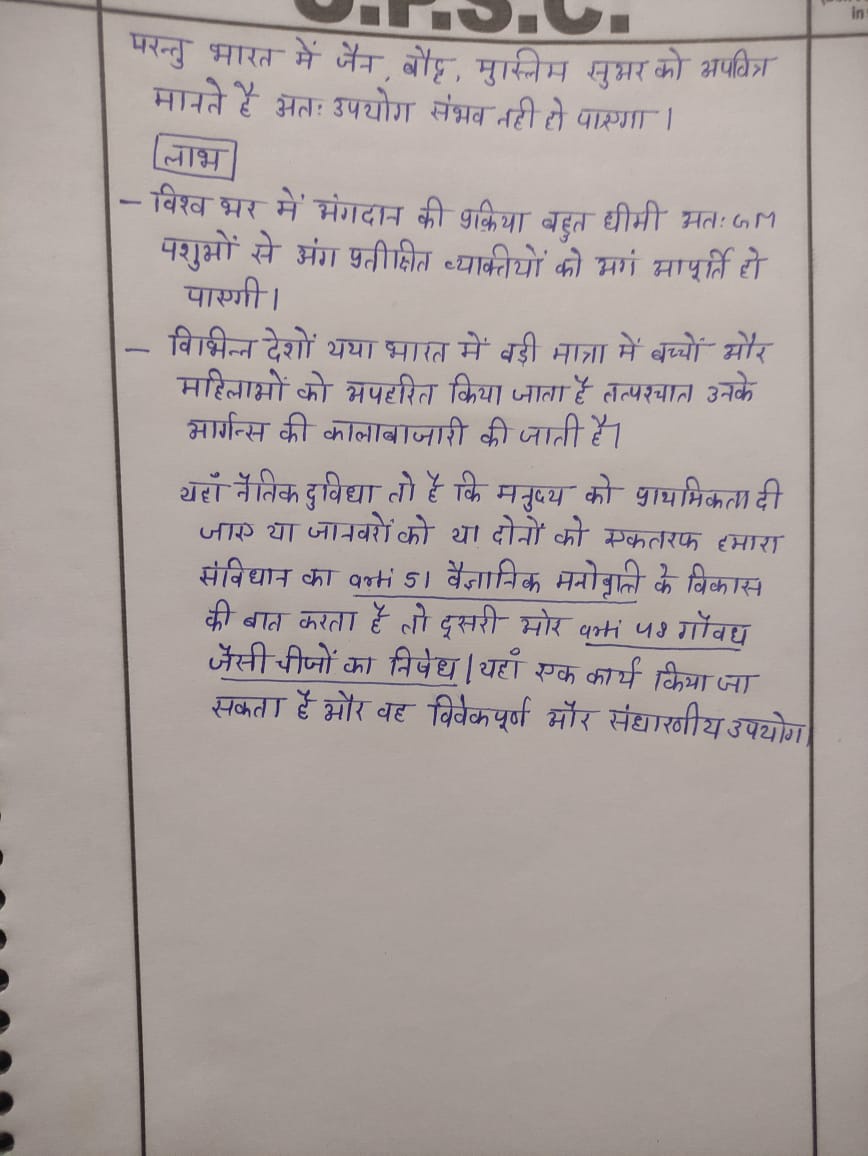 U.P.S.C.
in
परन्तु भारत में जैन, बौद्ध, मुस्लिम सुअर को अपवित्र
मानते है अतः उपयोग संभव नही हो पाएगा।
लाभ
– विश्व भर में अंगदान की प्रक्रिया बहुत धीमी अतः GM
पशुओं से अंग प्रतीक्षित व्यक्तियों को अगं आपूर्ति हो
पाएगी।
– विभिन्न देशों यथा भारत में बड़ी मात्रा में बच्चों और
महिलाओं को अपहरित किया जाता है तत्पश्चात उनके
आर्गन्स की कालाबाजारी की जाती है।
यहाँ नैतिक दुविधा तो है कि मनुष्य को प्राथमिकता दी
जाए या जानवरों को या दोनों को एकतरफ हमारा
संविधान का arti 51 वैज्ञानिक मनोवृत्ति के विकास
की बात करता है तो दूसरी ओर arti 48 गौवध
जैसी चीजों का निषेध। यहाँ एक कार्य किया जा
सकता है और वह विवेकपूर्ण और संधारणीय उपयोग।